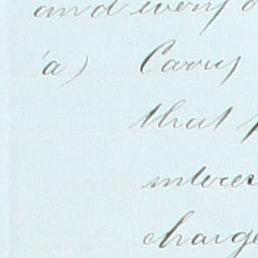 and every
a) Carry
that
interes
charge